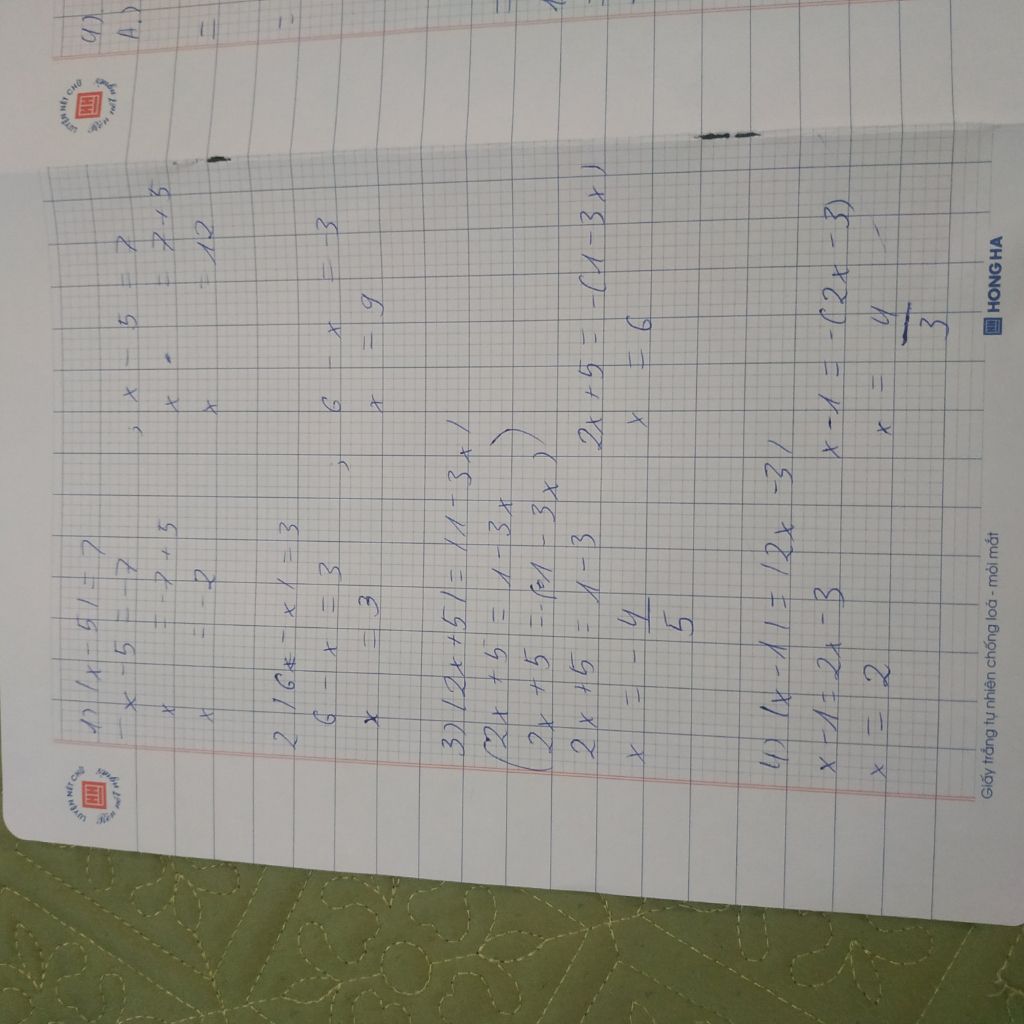 1) |x - 5| = 7
- x - 5 = -7 , x - 5 = 7
x = -7 + 5 x = 7 + 5
x = -2 x = 12
2 |6 - x| = 3
6 - x = 3 , 6 - x = -3
x = 3 x = 9
3) |2x + 5| = |1 - 3x|
(2x + 5 = 1 - 3x)
(2x + 5 = -(1 - 3x))
2x + 5 = 1 - 3 2x + 5 = -(1 - 3x)
x = - 4/5 x = 6
4) |x - 1| = |2x - 3|
x - 1 = 2x - 3 x - 1 = -(2x - 3)
x = 2 x = 4/3
Giấy trắng tự nhiên chống loá - mỏi mắt HONG HA
LUYỆN NÉT CHỮ
Rèn nết người
4)
A.)
LUYỆN NÉT CHỮ
Rèn nết người